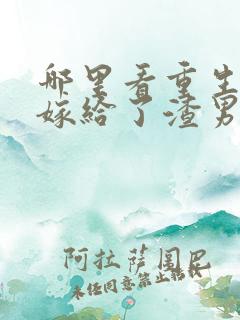 哪里看重生
嫁给了渣男
阿拉萨闺巴
未经同意禁止转载